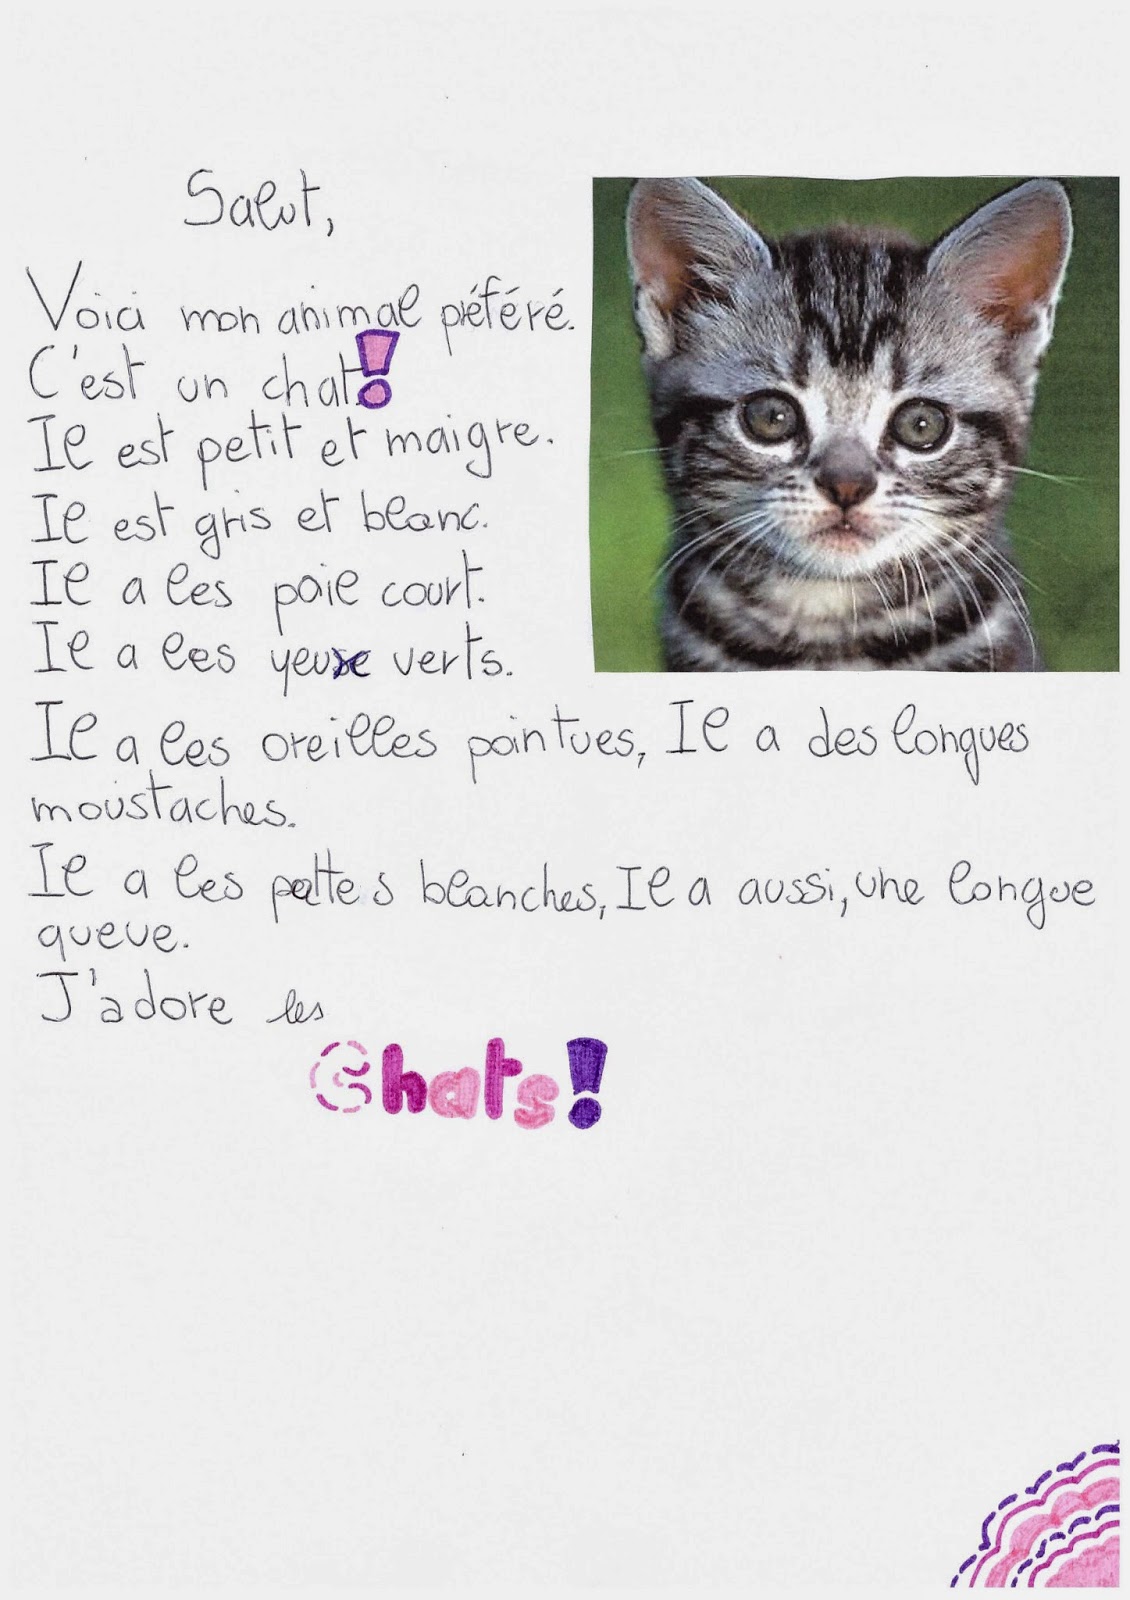 Salut,
Voici mon animal préféré.
C'est un chat!
Il est petit et maigre.
Il est gris et blanc.
Il a les poie court.
Il a les yeux verts.
Il a les oreilles pointues, Il a des longues
moustaches.
Il a les pattes blanches, Il a aussi, une longue
queue.
J'adore les
Chats!